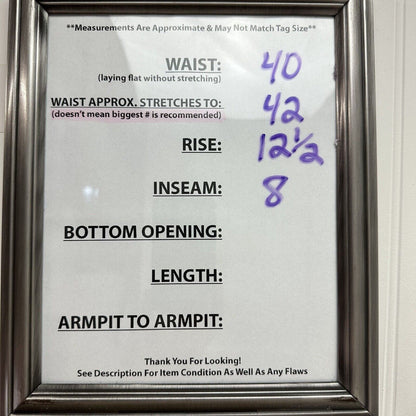 **Measurements Are Approximate & May Not Match Tag Size**
WAIST: 40
(laying flat without stretching)
WAIST APPROX. STRETCHES TO: 42
(doesn't mean biggest # is recommended)
RISE: 12½
INSEAM: 8
BOTTOM OPENING:
LENGTH:
ARMPIT TO ARMPIT:
Thank You For Looking!
See Description For Item Condition As Well As Any Flaws